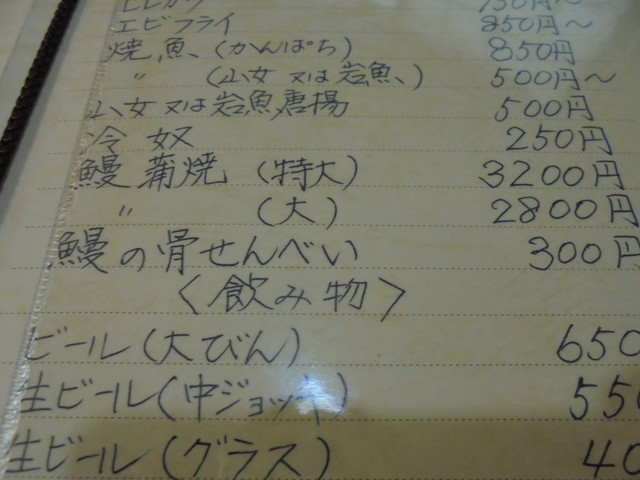 エビフライ 850円〜
焼魚(かんぱち) 850円
〃 (山女 又は岩魚) 500円〜
山女又は岩魚唐揚 500円
冷奴 250円
鰻蒲焼(特大) 3200円
〃 (大) 2800円
鰻の骨せんべい 300円
〈飲み物〉
ビール(大びん) 650
生ビール(中ジョッキ) 550
生ビール(グラス) 40